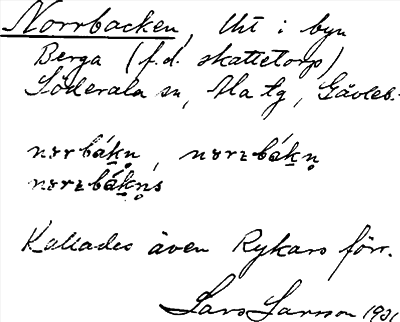 Norrbacken, Uht i byn
Berga (f.d. skattetorp)
Söderala sn, Ala tg, Gävleb.
Kallades även Rykars förr.
Lars Larsson 1931